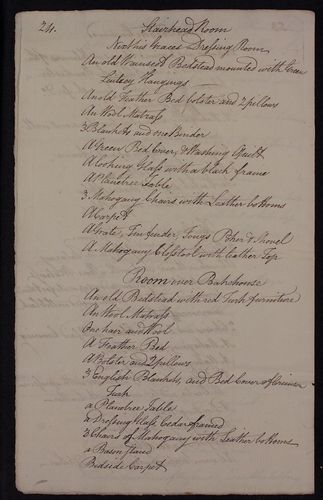 24.
Stairhead Room
Next his Graces Dressing Room
An old Wainscot Bedstead mounted with Green
Lutsey Hangings
An old Feather Bed bolster and 2 pillows
An Wool Matrass
3 Blankets and one Under
A Green Bed Cover, & Washing Quilt
A looking Glass with a black frame
A Planetree Table
3 Mahogany Chairs with Leather bottoms
A Carpet
A Grate, Tin fender, Tongs Poker & Shovel
A Mahogany Closstool with leather Top
Room over Bakehouse
An old Bedstead with red Turk furniture
An Wool Matrass
One hair and Wool
A Feather Bed
A Bolster and 2 pillows
3 English Blankets, and Bed Cover of Crimson
Turk
a Planetree Table
a Dressing Glass Cedar framed
2 Chairs of Mahogany with Leather bottoms
a Bason stand
Bedside Carpet